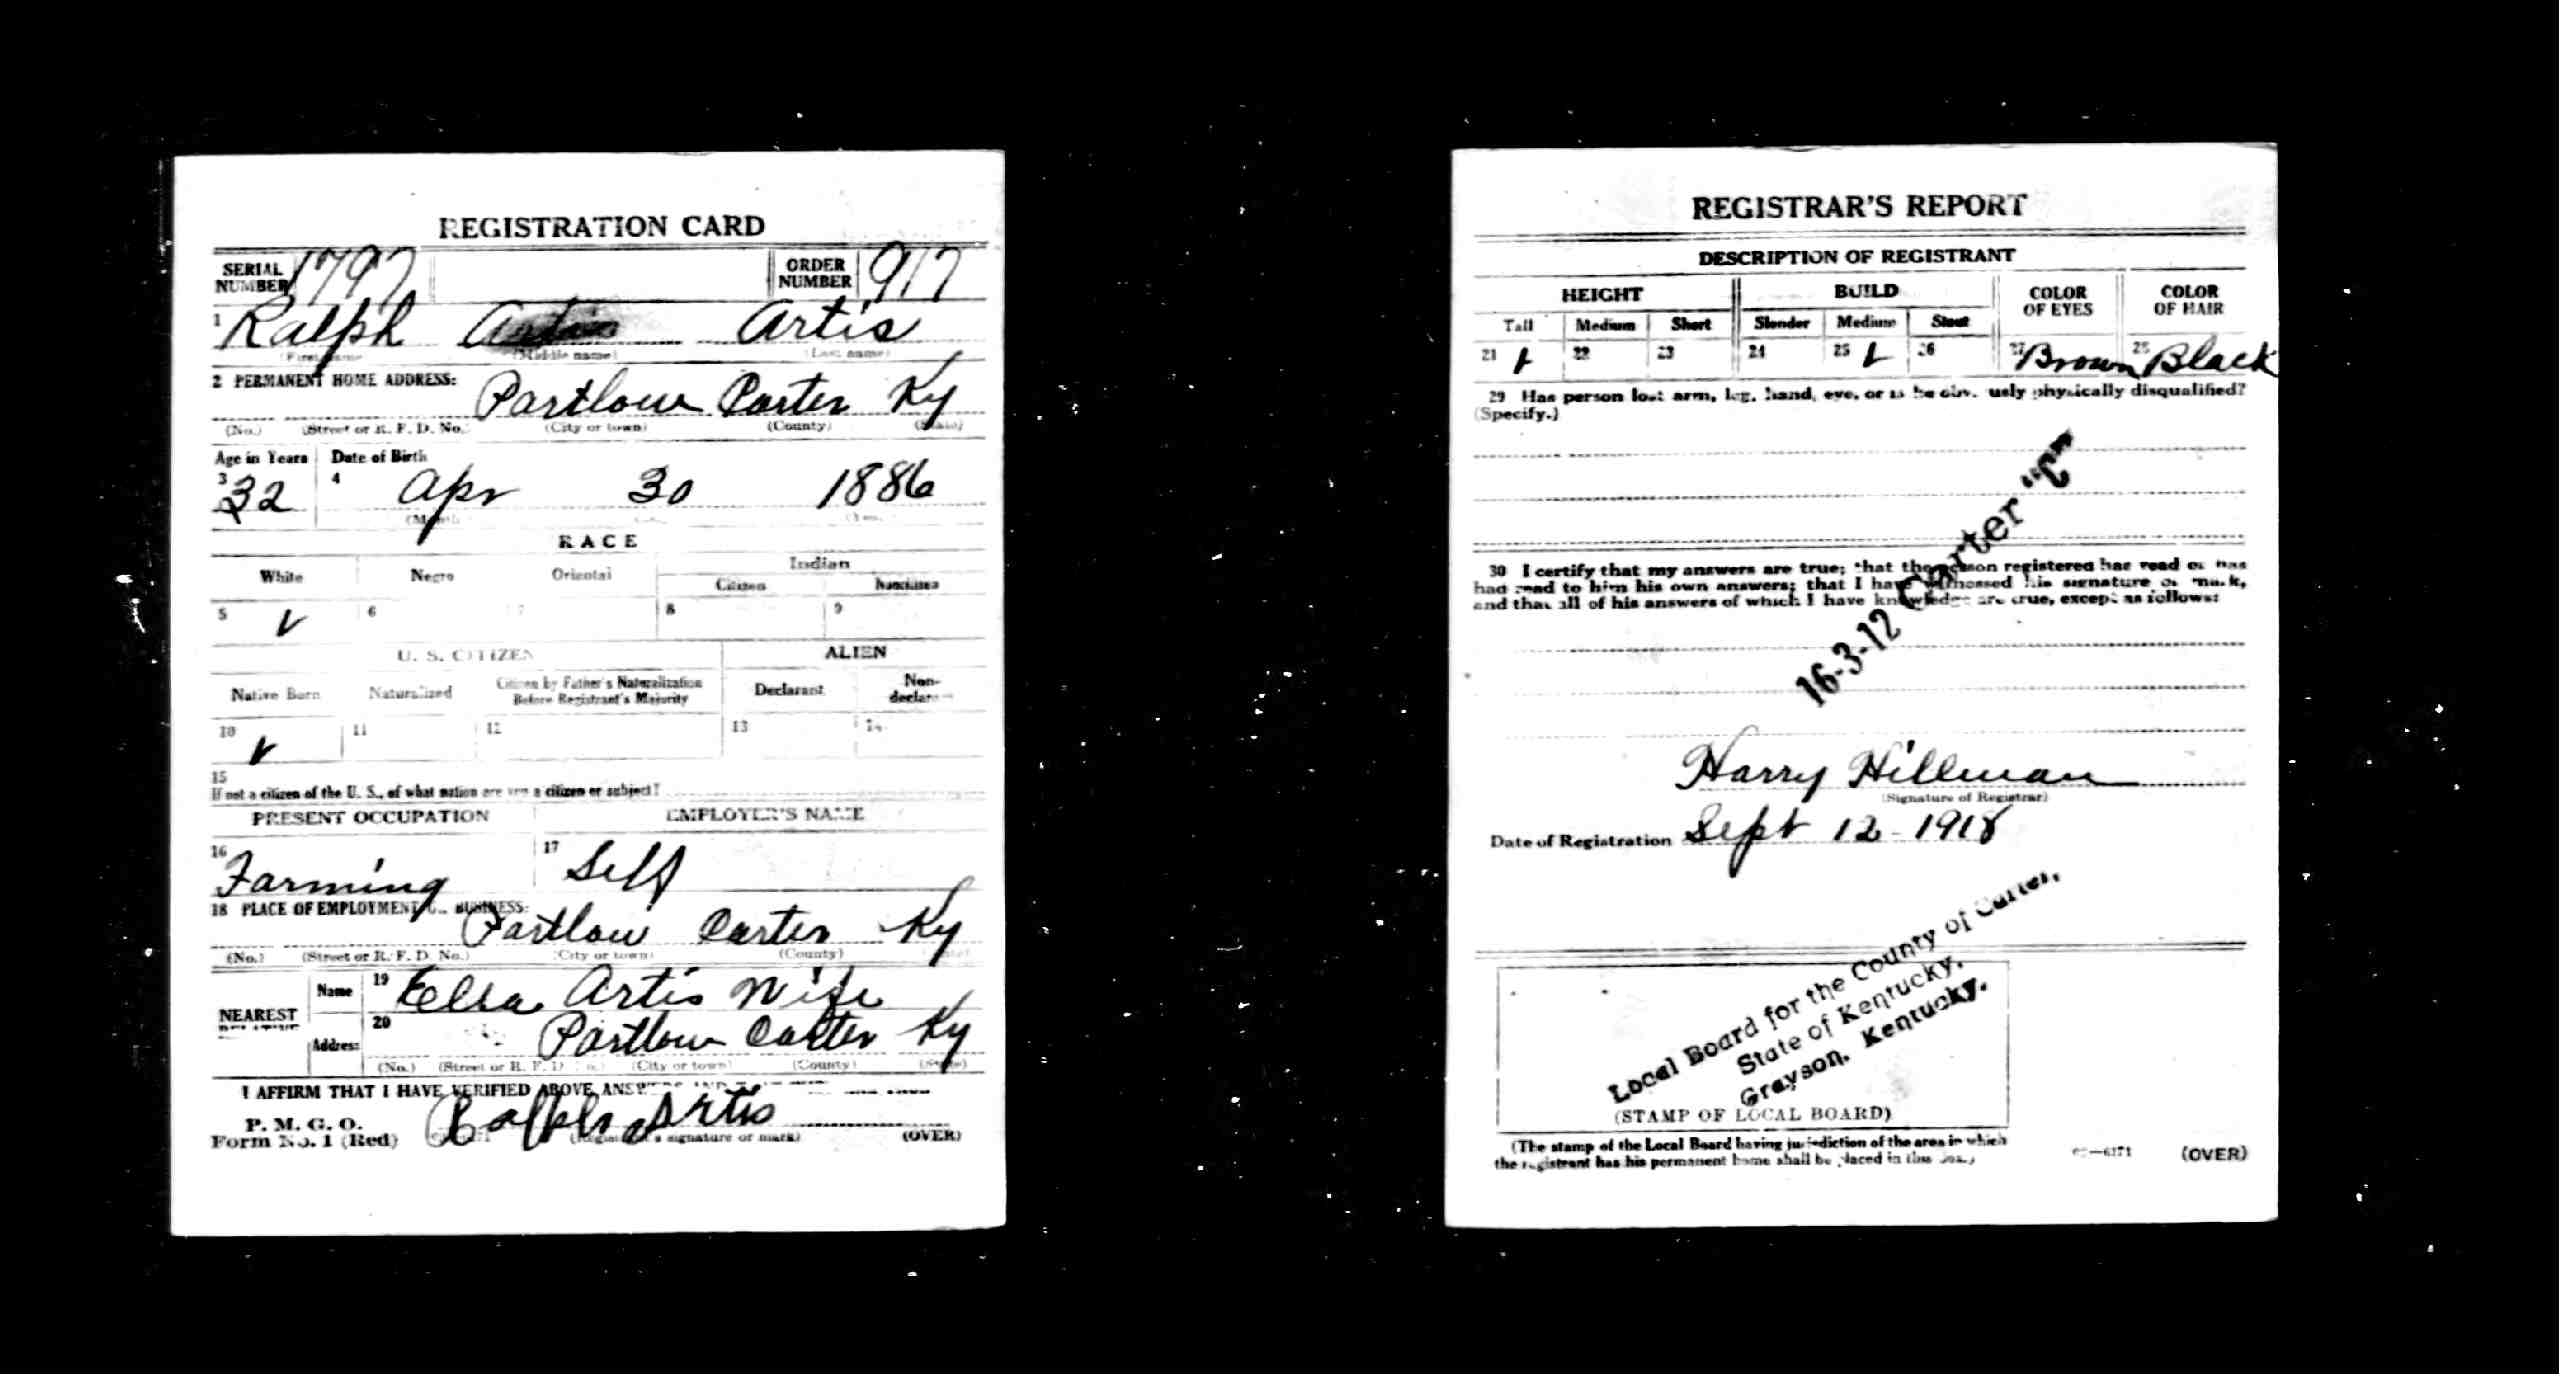 REGISTRATION CARD
SERIAL NUMBER 1797 ORDER NUMBER 917
1 Ralph Artis
(First name) (Middle name) (Last name)
2 PERMANENT HOME ADDRESS:
Partlow Carter Ky
(No.) (Street or R. F. D. No.) (City or town) (County) (State)
Age in Years Date of Birth
3 32 4 Apr 30 1886
(Month)
RACE
White Negro Oriental Indian
Citizen Noncitizen
5 6 7 8 9
U. S. CITIZEN ALIEN
Native Born Naturalized Citizen by Father's Naturalization Before Registrant's Majority Declarant Non-declarant
10 11 12 13 14
15
If not a citizen of the U. S., of what nation are you a citizen or subject?
PRESENT OCCUPATION EMPLOYER'S NAME
16 Farming 17 Self
18 PLACE OF EMPLOYMENT BUSINESS:
Partlow Carter Ky
(No.) (Street or R. F. D. No.) (City or town) (County)
NEAREST RELATIVE
Name 19 Elsa Artis Wife
Address 20 Partlow Carter Ky
(No.) (Street or R. F. D. No.) (City or town) (County) (State)
I AFFIRM THAT I HAVE VERIFIED ABOVE
P. M. G. O.
Form No. 1 (Red) Ralph Artis
(Registrant's signature or mark) (OVER)
REGISTRAR'S REPORT
DESCRIPTION OF REGISTRANT
HEIGHT BUILD COLOR OF EYES COLOR OF HAIR
Tall Medium Short Slender Medium Stout
21 22 23 24 25 26 27 Brown 28 Black
29 Has person lost arm, leg, hand, eye, or is he obviously physically disqualified?
(Specify.)
30 I certify that my answers are true; that the person registered has read or has
had read to him his own answers; that I have witnessed his signature or mark,
and that all of his answers of which I have knowledge are true, except as follows:
16-3-12 Carter "C"
Harry Hillman
(Signature of Registrar)
Date of Registration Sept 12-1918
Local Board for the County of Carter,
State of Kentucky.
Grayson, Kentucky.
(STAMP OF LOCAL BOARD)
(The stamp of the Local Board having jurisdiction of the area in which
the registrant has his permanent home shall be placed in this box.)
(OVER)